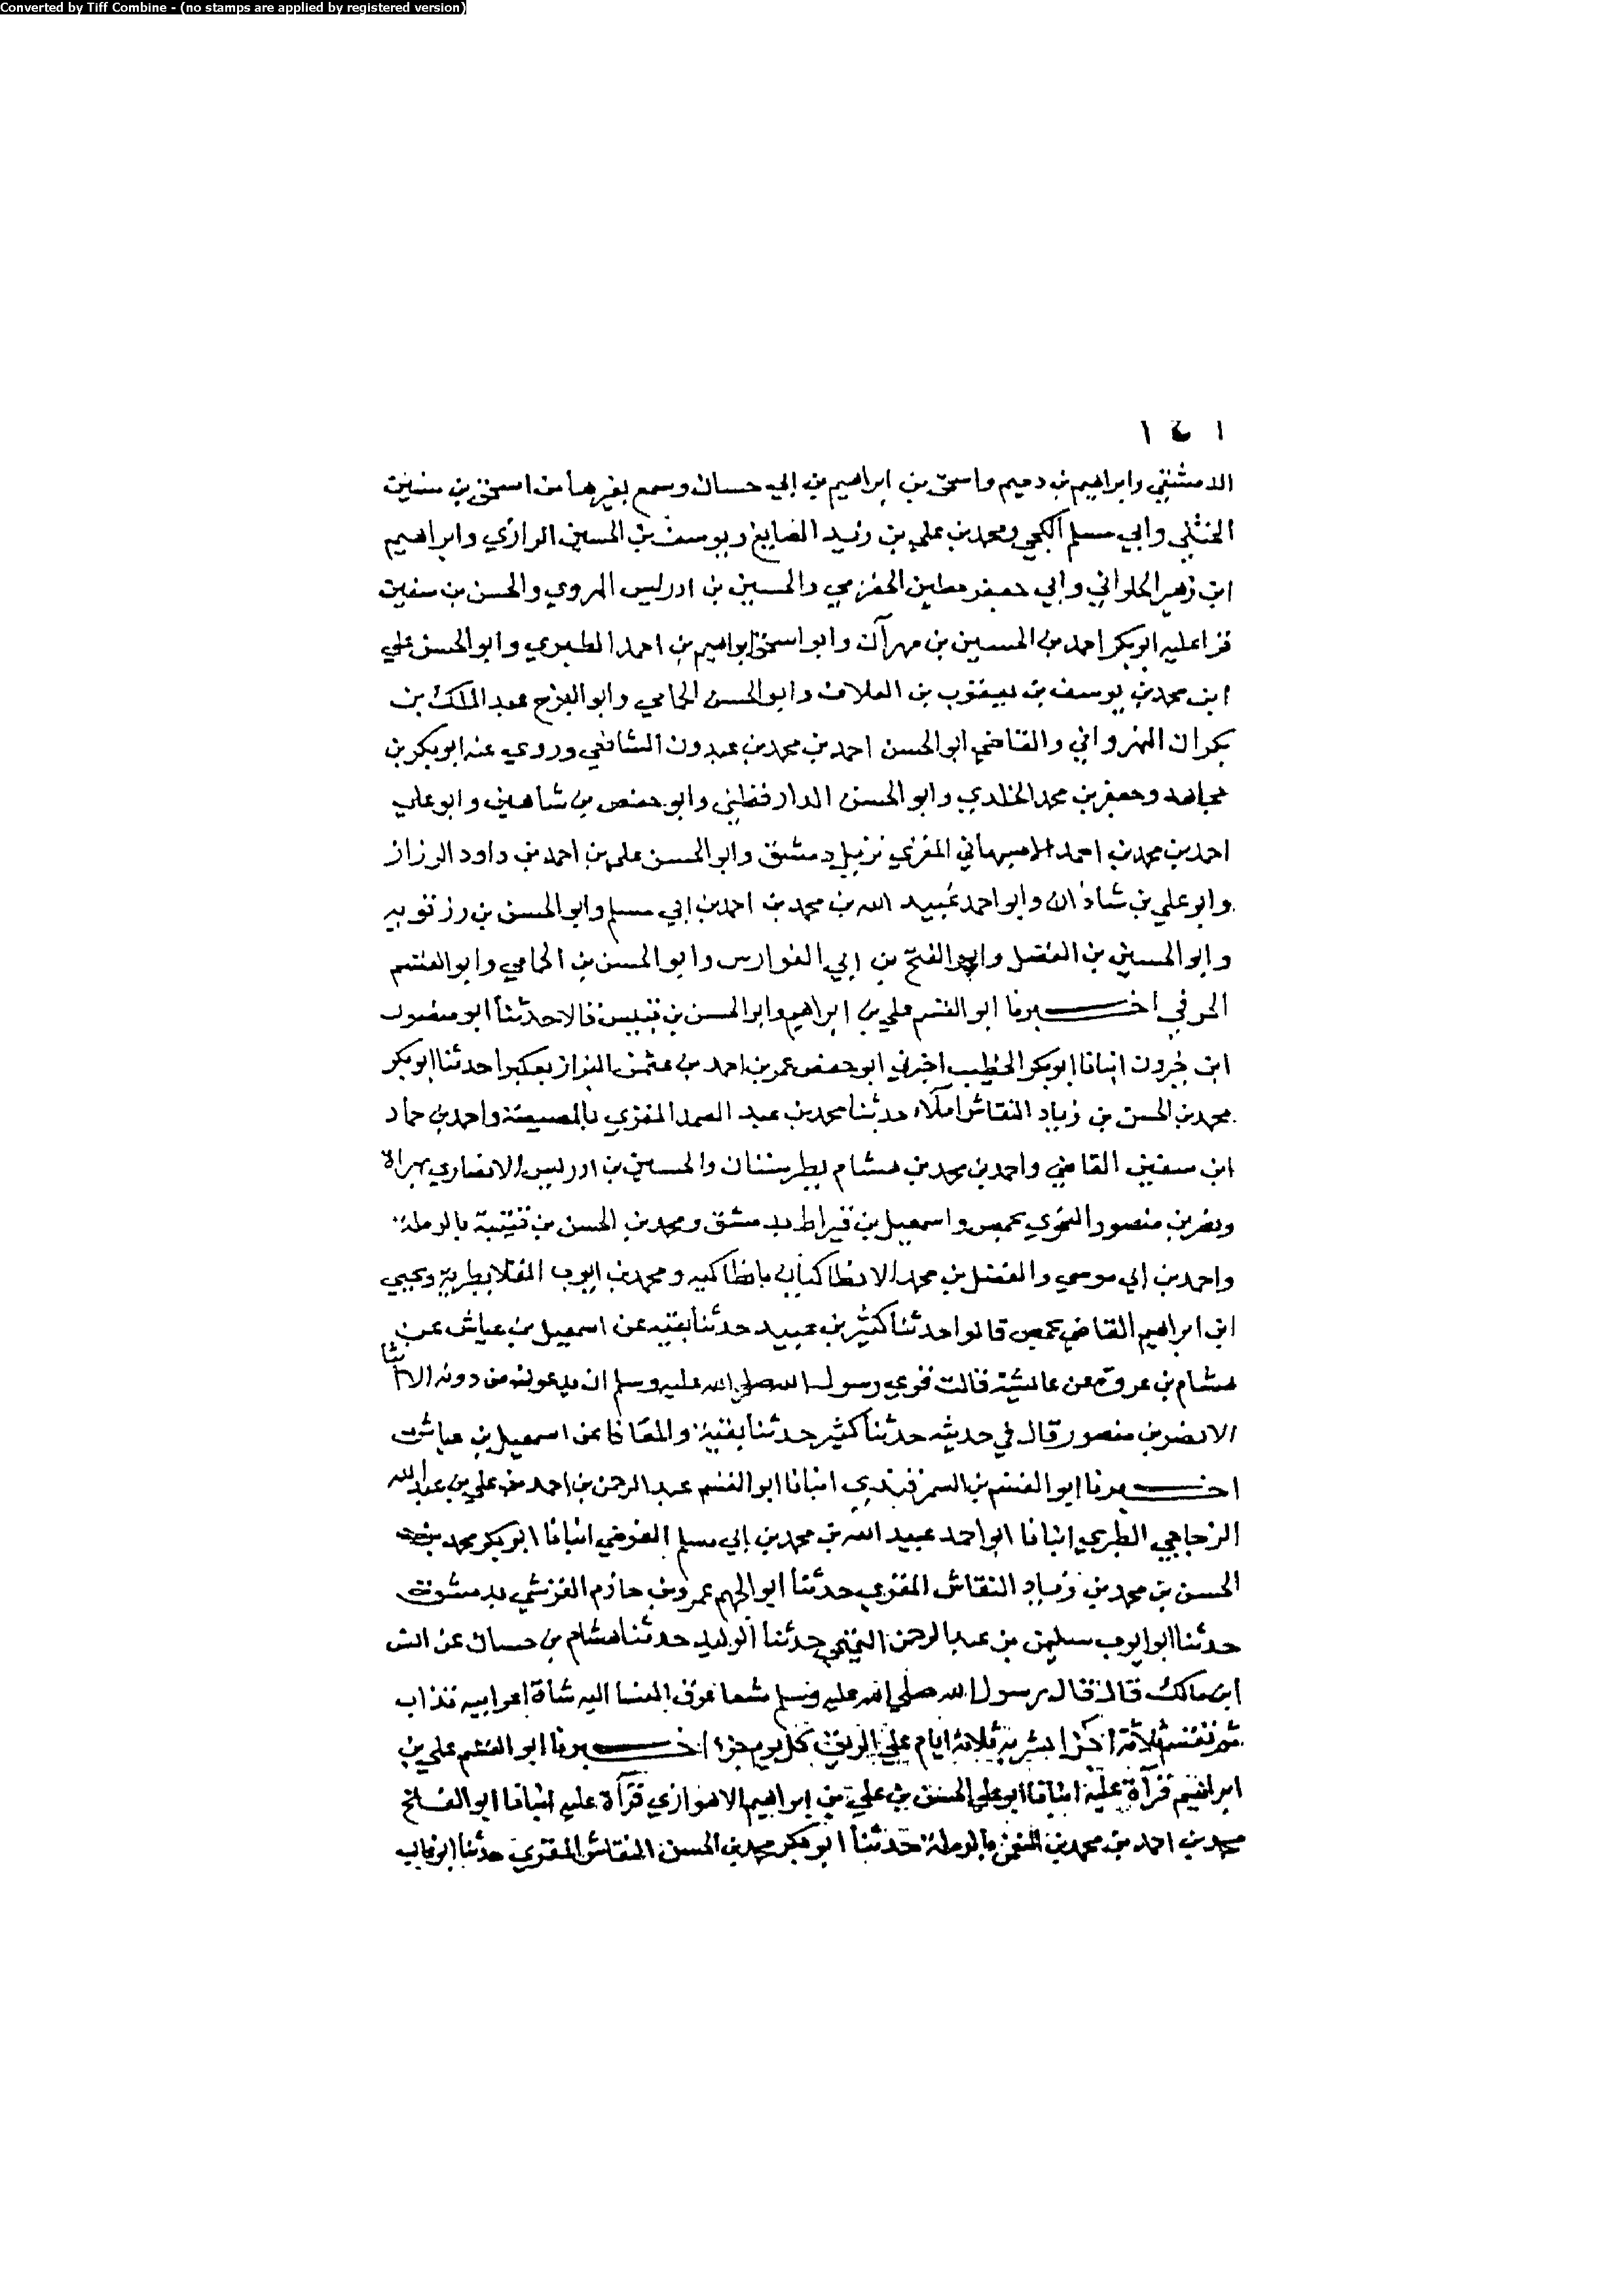 Converted by Tiff Combine - (no stamps are applied by registered version)
١٤١
الدمشقي وابراهيم بن دحيم واسحق بن ابراهيم بن ابي حسان وسمع بغيرها من اسحق بن سنين
الختلي وابي مسلم الكجي ومحمد بن علي بن زيد الصايغ ويوسف بن الحسين الرازي وابراهيم
ابن زهير الحلواني وابي جعفر مطين الحضرمي والحسين بن ادريس الهروي والحسن بن سفين
قرا عليه ابو بكر احمد بن الحسين بن مهرآن وابو اسحق ابراهيم بن احمد الطبري وابو الحسن علي
ابن محمد بن يوسف بن يعقوب بن العلاف وابو الحسن الحمامي وابو الفرج عبد الملك بن
بكران النهرواني والقاضي ابو الحسن احمد بن محمد بن عبدون الشافعي وروي عنه ابو بكر بن
مجاهد وجعفر بن محمد الخلدي وابو الحسن الدارقطني وابو حفص بن شاهين وابو علي
احمد بن محمد بن احمد الاصبهاني المقري نزيل دمشق وابو الحسن علي بن احمد بن داود الرزاز
وابو علي بن شاذان وابو احمد عبيد الله بن محمد بن احمد بن ابي مسلم وابو الحسن بن رزقويه
وابو الحسين بن الفضل وابو الفتح بن ابي الفوارس وابو الحسن بن الحمامي وابو القسم
الحرفي اخبرنا ابو القسم علي بن ابراهيم وابو الحسن بن قبيس قالا حدثنا ابو منصور
ابن خيرون انبانا ابو بكر الخطيب اخبرني ابو حفص عمر بن احمد بن عثمن البزاز بعكبرا حدثنا ابو بكر
محمد بن الحسن بن زياد النقاش املآء حدثنا محمد بن عبد الصمد المقري بالمصيصة واحمد بن حماد
ابن سفين القاضي واحمد بن محمد بن هشام بطرسنان والحسين بن ادريس الانصاري بهراة
ونصر بن منصور النحوي بحمص واسمعيل بن قيراط بدمشق ومحمد بن الحسن بن قتيبة بالرملة
واحمد بن ابي موسي والفضل بن محمد الانطاكيان بانطاكيه ومحمد بن ايوب القلا بطبرية ويحيي
ابن ابراهيم القاضي بحمص قالوا حدثنا كثير بن عبيد حدثنا بقيه عن اسمعيل بن عياش عن
هشام بن عروة عن عائشة قالت رسول الله صلي الله عليه وسلم ان يدعون من دونه الا اثنا
الا نصر بن منصور قال في حديثه حدثنا كثير حدثنا بقية والمعافا عن اسمعيل بن عياش
اخبرنا ابو القسم بن السمرقندي انبانا ابو القسم عبد الرحمن بن احمد بن علي بن عبد الله
الزجاجي الطبري انبانا ابو احمد عبيد الله بن محمد بن ابي مسلم الفرضي انبانا ابو بكر محمد بن
الحسن بن محمد بن زياد النقاش المقري حدثنا ابو الجهم عمرو بن حازم القرشي بدمشق
حدثنا ابو ايوب سليمن بن عبد الرحمن التيمي حدثنا الوليد حدثنا هشام بن حسان عن انس
ابن مالك قال قال رسول الله صلي الله عليه وسلم شفا عرق النسا الية شاة اعرابيه تذاب
ثم تقسم ثلاثة اجزا يشربه ثلاثة ايام علي الريق كل يوم جزء اخبرنا ابو القسم علي بن
ابراهيم قرآة عليه انبانا ابو علي الحسن بن علي بن ابراهيم الاهوازي قرآة عليه انبانا ابو الفتح
محمد بن احمد بن محمد بن بالرملة حدثنا ابو بكر محمد بن الحسن النقاش المقري حدثنا ابو غالب